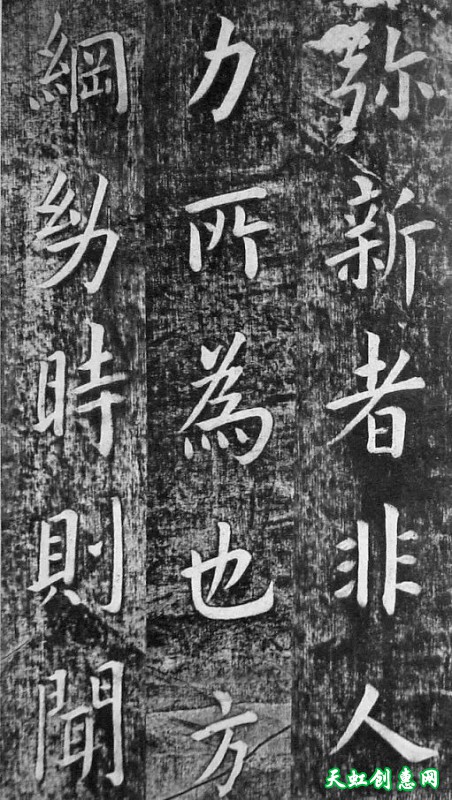 弥新者非人
力所為也方
綱幼時則聞
天虹创惠网